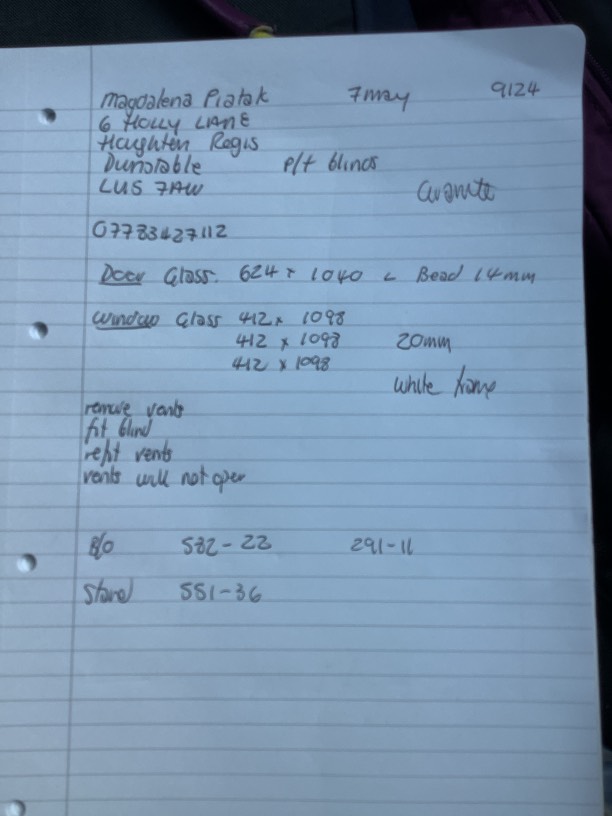 Magdalena Piatak 7 May 9124
6 HOLLY LANE
Houghten Regis
Dunstable p/f blinds
LU5 7AW
07783427112
Door Glass. 624 x 1040 L Bead 14mm
Window Glass 412 x 1098
412 x 1098 20mm
412 x 1098
white frame
remove vents
fit blind
refit vents
vents will not open
B/O 532-22 291-11
Stand 551-36